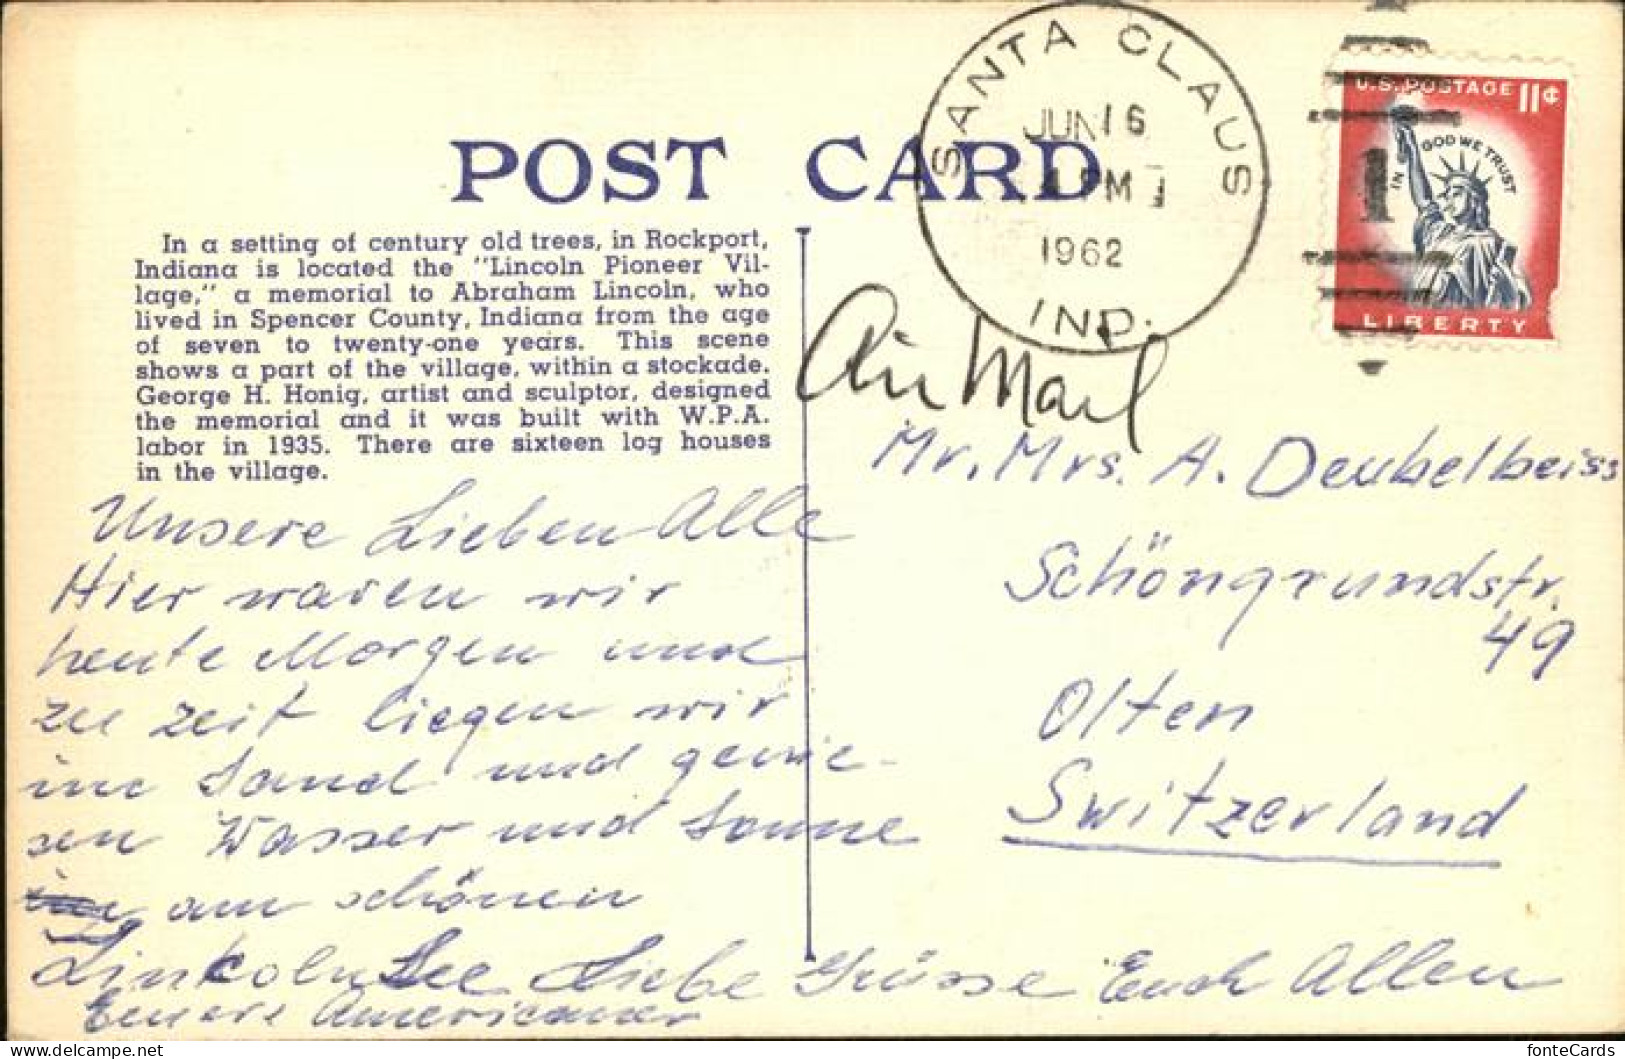 SANTA CLAUS
JUN 16
PM
1962
IND.
U.S. POSTAGE 11¢
IN GOD WE TRUST
LIBERTY
POST CARD
In a setting of century old trees, in Rockport,
Indiana is located the "Lincoln Pioneer Vil-
lage," a memorial to Abraham Lincoln, who
lived in Spencer County, Indiana from the age
of seven to twenty-one years. This scene
shows a part of the village, within a stockade.
George H. Honig, artist and sculptor, designed
the memorial and it was built with W.P.A.
labor in 1935. There are sixteen log houses
in the village.
Air Mail
Mr. Mrs. A. Deubelbeiss
Schöngrundstr.
49
Olten
Switzerland
Unsere Lieben Alle
Hier waren wir
heute Morgen und
zu zeit liegen wir
im Sand und genie-
sen Wasser und Sonne
am schönen
Linkoln See Liebe Grüsse Euch Allen
Euere Americaner
fonteCards